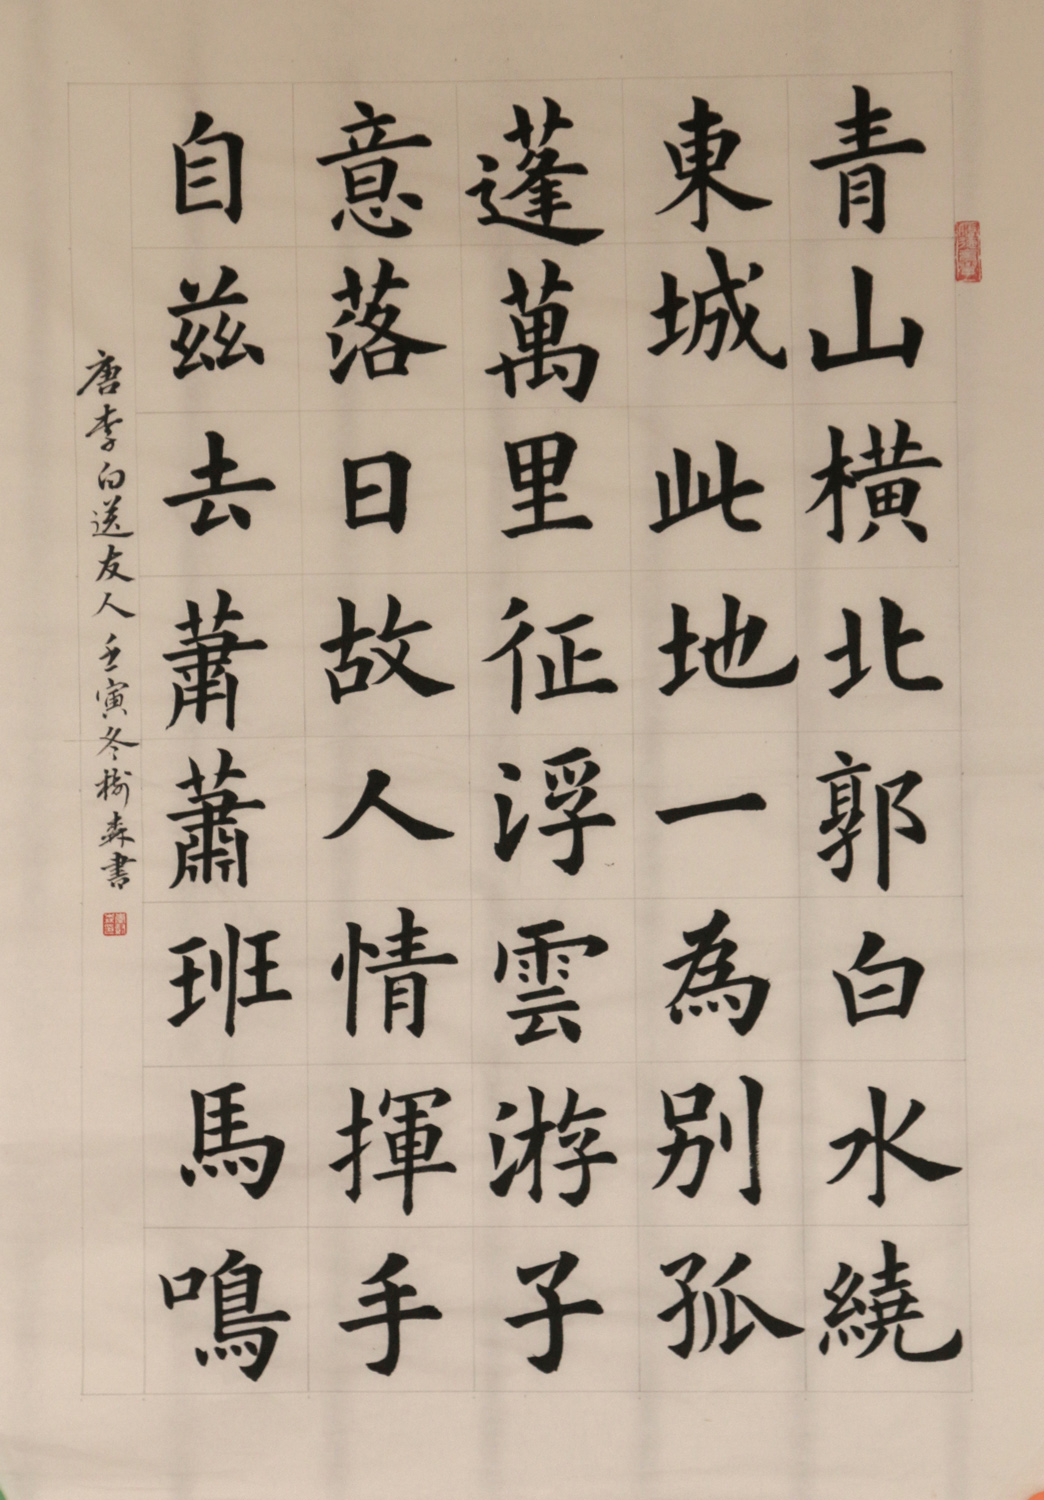 青山橫北郭白水繞
東城此地一為別孤
蓬萬里征浮雲游子
意落日故人情揮手
自茲去蕭蕭班馬鳴
唐李白送友人壬寅冬樹森書